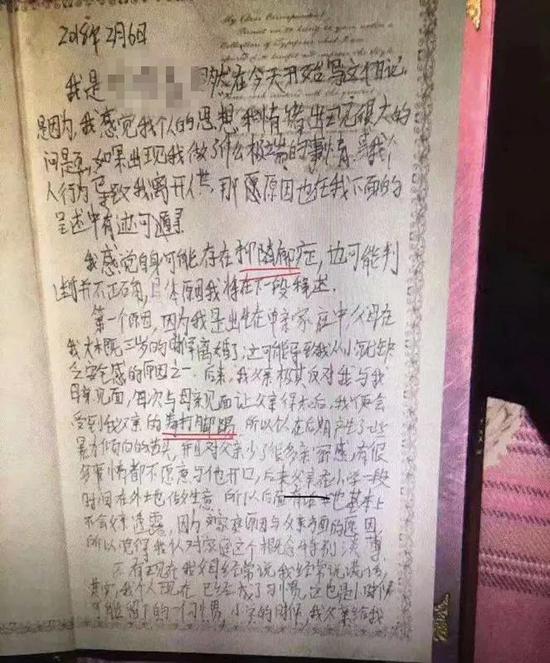 2018年2月6日
My Clear Correspondent
我是 既然在今天开始写这个日记
是因为,我感觉我个人的思想和情绪出现很大的
问题,如果出现我做了什么极端的事情,或我个
人行为导致我离开人世,那愿原因也在我下面的
呈述中有迹可遁寻
我感觉自身可能存在抑郁症,也可能判
断并不正确,具体原因我将在下一段释述.
第一个原因,因为我是出生在单亲家庭中,父母在
我大概三岁的时候离婚了,这可能导致我从小就缺
乏安全感的原因之一.后来,我父亲极其反对我与我
母亲见面,每次与母亲见面让父亲得知后,我便会
受到我父亲的毒打脚踢.所以个人在后期产生了些
暴力倾向的苗头,并且对父亲少了很多亲密感,有很
多事情都不愿意与他开口,后来父亲在小学一段
时间在外地做生意,所以后面 也基本上
不会父亲透露,因为家庭原因与父亲方面的原因
所以觉得我人对家庭这个概念特别淡薄
现在我父母经常说我经常说谎话,
其实,我个人现在已经成了习惯,这也是小时候
可能留下的一个习惯,小学的时候,我父亲给我